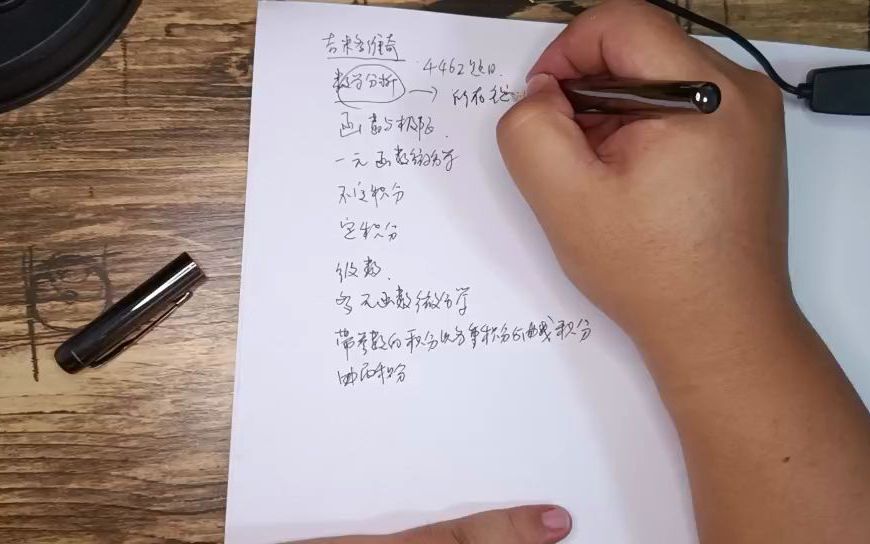 吉米多维奇
数学分析 4462题目.
→ 所有
函数与极限.
一元函数微分学
不定积分
定积分
级数.
多元函数微分学
带参数的积分以及重积分的曲线积分
曲面积分